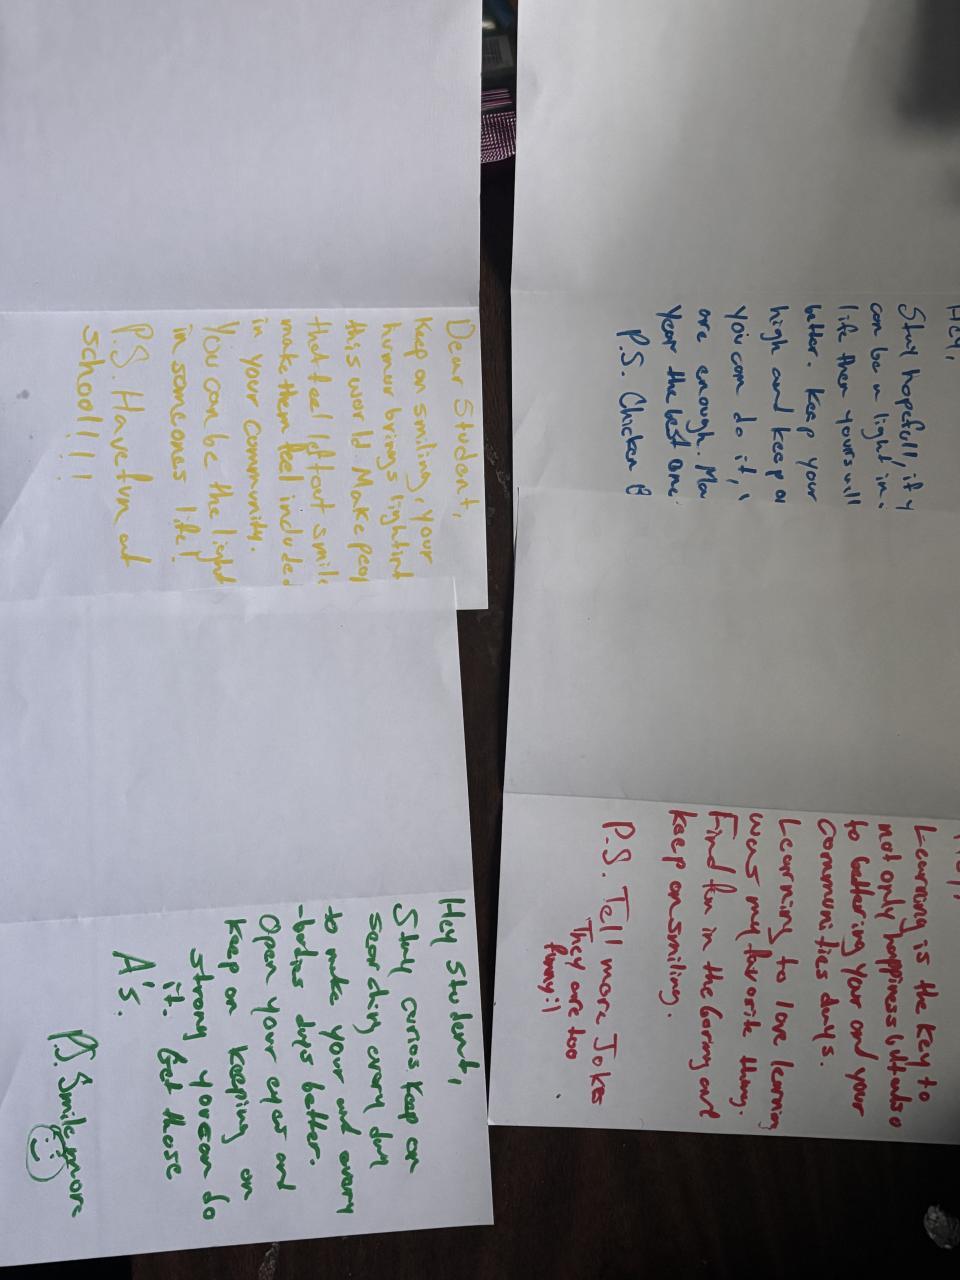 Hey,
Stay hopefull, if y
can be a light in
life then yours will
better. Keep your
high and keep o
you can do it,
are enough. Ma
year the best one
P.S. Chicken
Learning is the key to
not only happiness but also
to bettering your and your
communities days.
Learning to love learning
was my favorite thing.
Find fun in the boring and
keep on smiling.
P.S. Tell more Jokes
They are too
funny:)
Dear Student,
Keep on smiling, your
humor brings light int
this world. Make peo
that feel left out smile
make them feel included
in your community.
You can be the light
in someones life!
P.S. Have fun at
school!!!!
Hey Student,
Stay curios. Keep on
searching every day
to make your and every
-bodies days better.
Open your eyes and
keep on keeping on
strong you can do
it. Get those
A's.
P.S. Smile more